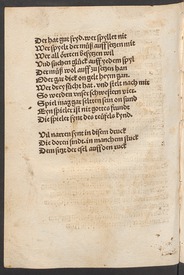 Der hat gut spyl, wer spyllet nit
Wer spyelt der müß auff setzen mit
Wer all örtten besytzen wil
Vnd suchen glück auff yedem spyl
Der müß wol auff zu setzen han
Oder gar dick on gelt heym gan.
Wer drey sucht hat. vnd stelt nach mir
So werden vnser schwestern vier.
Spiel mag gar selten sein on sünd
Eyn spieler ist nit gottes fründt
Die spieler synt des teüfels kynd.
Vil narren sent in disem druck
Die doren sindt in manchem stuck
Dem sitzt der esel auff dem ruck